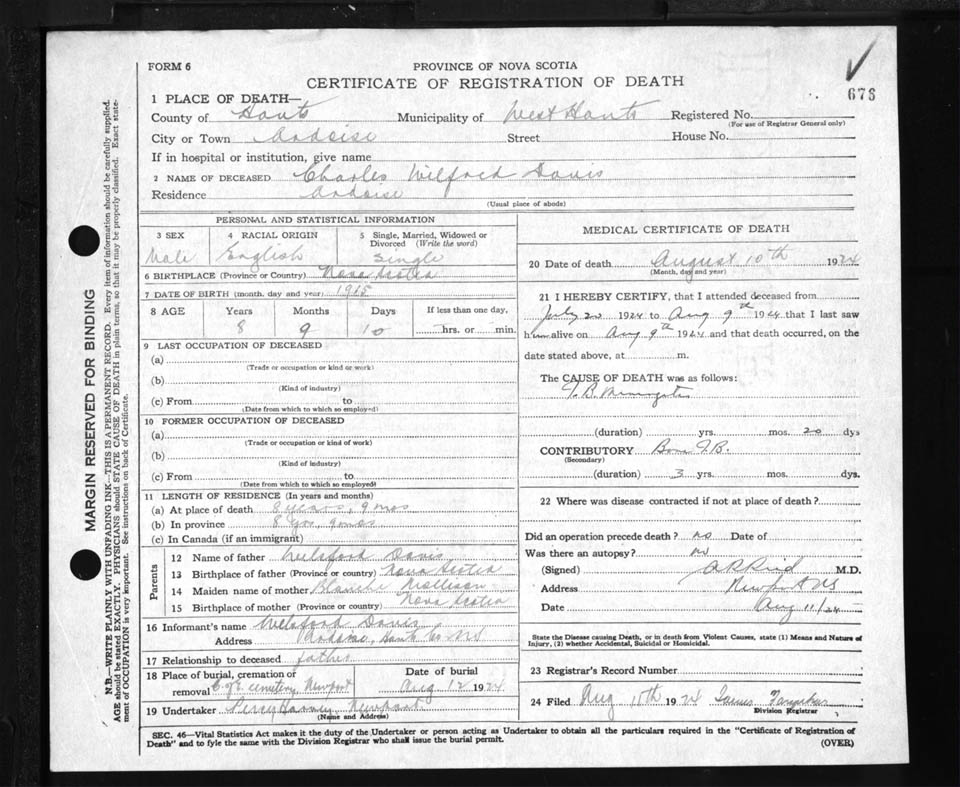 FORM 6
PROVINCE OF NOVA SCOTIA
CERTIFICATE OF REGISTRATION OF DEATH
673
1 PLACE OF DEATH—
County of Hants Municipality of West Hants Registered No.
(For use of Registrar General only)
City or Town Ardoise Street House No.
If in hospital or institution, give name
2 NAME OF DECEASED Charles Wilfred Davis
Residence Ardoise
(Usual place of abode)
PERSONAL AND STATISTICAL INFORMATION
3 SEX 4 RACIAL ORIGIN 5 Single, Married, Widowed or Divorced (Write the word)
Male English Single
6 BIRTHPLACE (Province or Country) Nova Scotia
7 DATE OF BIRTH (month, day and year) 1915
8 AGE Years Months Days If less than one day,
8 9 10 hrs. or min.
9 LAST OCCUPATION OF DECEASED
(a)
(Trade or occupation or kind or work)
(b)
(Kind of industry)
(c) From to
(Date from which to which so employed)
10 FORMER OCCUPATION OF DECEASED
(a)
(Trade or occupation or kind of work)
(b)
(Kind of industry)
(c) From to
(Date from which to which so employed)
11 LENGTH OF RESIDENCE (In years and months)
(a) At place of death 8 years, 9 mos
(b) In province 8 yrs. 9 mos
(c) In Canada (if an immigrant)
Parents
12 Name of father Welsford Davis
13 Birthplace of father (Province or country) Nova Scotia
14 Maiden name of mother Blanche Mollison
15 Birthplace of mother (Province or country) Nova Scotia
16 Informant's name Welsford Davis
Address Ardoise, Hants Co NS
17 Relationship to deceased father
18 Place of burial, cremation or removal C. of E. cemetery, Newport
Date of burial Aug 12 1924
19 Undertaker Percy Newport
(Name and Address)
MEDICAL CERTIFICATE OF DEATH
20 Date of death August 10th 1924
(Month, day and year)
21 I HEREBY CERTIFY, that I attended deceased from
July 20 1924 to Aug 9th 1924 that I last saw
him alive on Aug 9th 1924 and that death occurred, on the
date stated above, at m.
The CAUSE OF DEATH was as follows:
T. B. Meningitis
(duration) yrs. mos. 20 dys
CONTRIBUTORY Bone T.B.
(Secondary)
(duration) 3 yrs. mos. dys.
22 Where was disease contracted if not at place of death?
Did an operation precede death? no Date of
Was there an autopsy? no
(Signed) A R Reid M.D.
Address Newport NS
Date Aug 11/24
State the Disease causing Death, or in death from Violent Causes, state (1) Means and Nature of
Injury, (2) whether Accidental, Suicidal or Homicidal.
23 Registrar's Record Number
24 Filed Aug 1924 James
Division Registrar
SEC. 46—Vital Statistics Act makes it the duty of the Undertaker or person acting as Undertaker to obtain all the particulars required in the "Certificate of Registration of
Death" and to fyle the same with the Division Registrar who shall issue the burial permit.
(OVER)
MARGIN RESERVED FOR BINDING
N.B.—WRITE PLAINLY WITH UNFADING INK—THIS IS A PERMANENT RECORD. Every item of information should be carefully supplied.
AGE should be stated EXACTLY. PHYSICIANS should STATE CAUSE OF DEATH in plain terms, so that it may be properly classified. Exact state-
ment of OCCUPATION is very important. See instructions on back of Certificate.